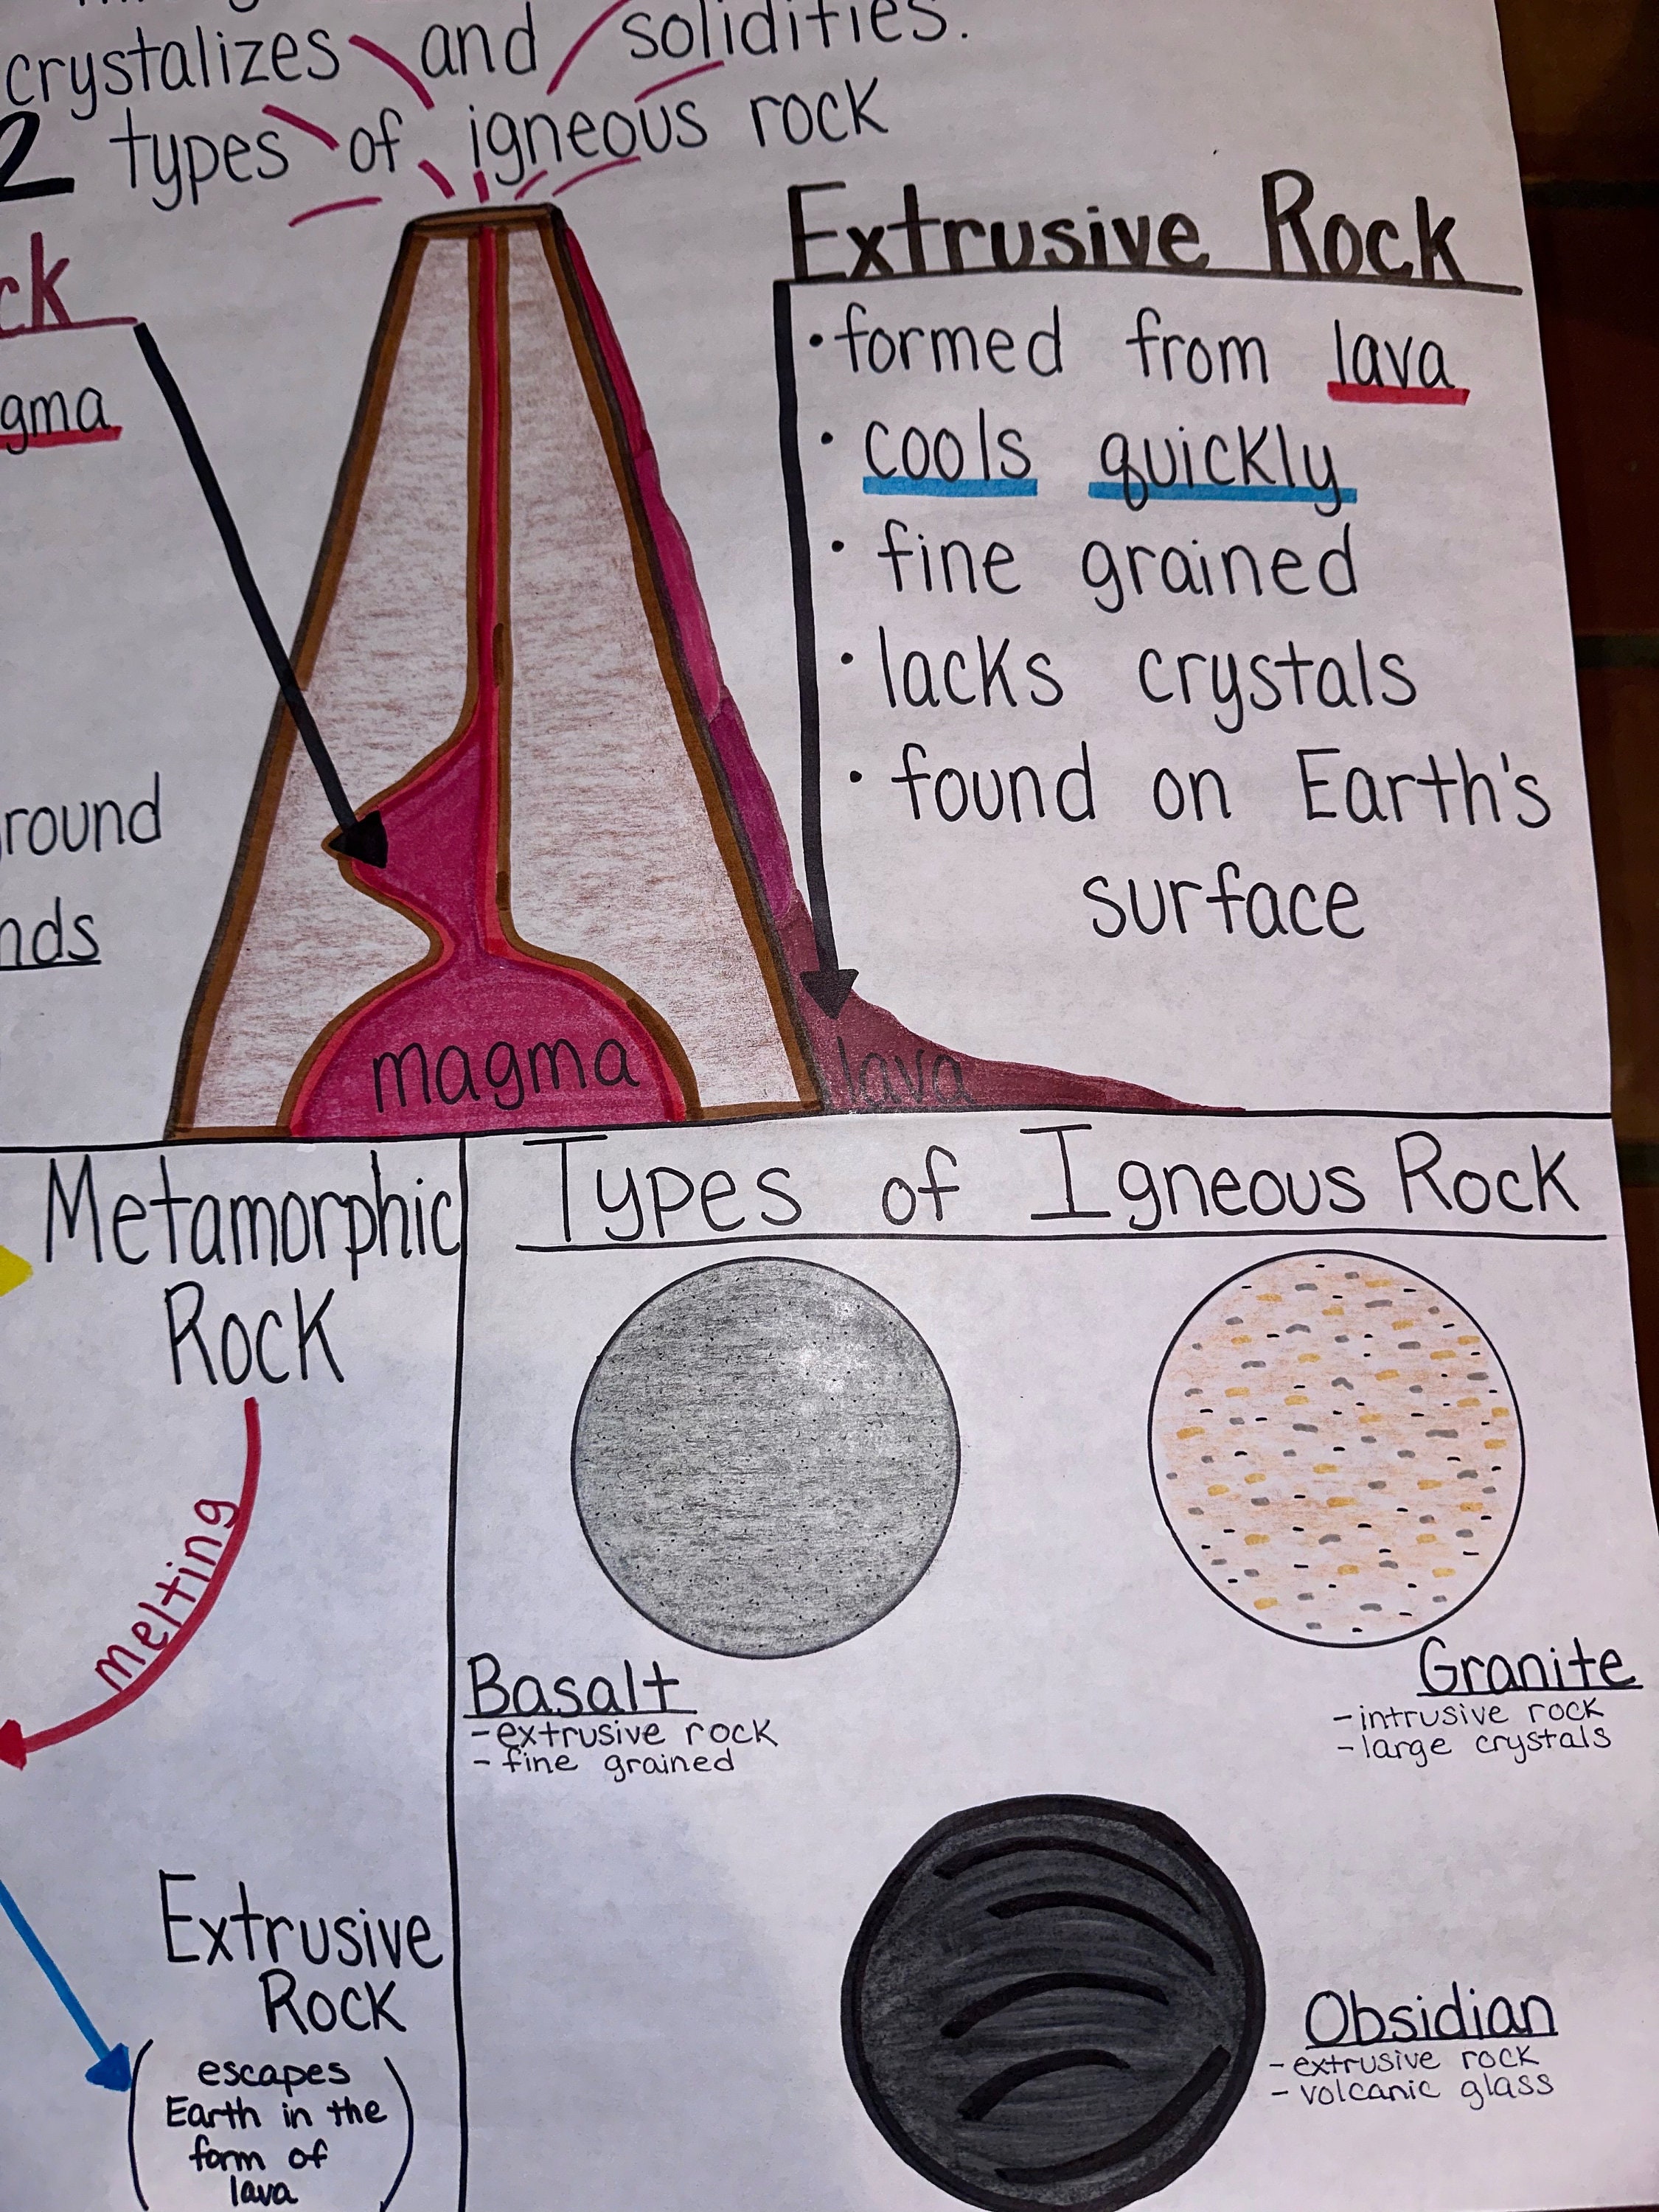 crystalizes and solidifies.
2 types of igneous rock
ck
gma
round
nds
Extrusive Rock
• formed from lava
• cools quickly
• fine grained
• lacks crystals
• found on Earth's
surface
magma
lava
Metamorphic
Rock
melting
Extrusive
Rock
(escapes
Earth in the
form of
lava)
Types of Igneous Rock
Basalt
- extrusive rock
- fine grained
Granite
- intrusive rock
- large crystals
Obsidian
- extrusive rock
- volcanic glass